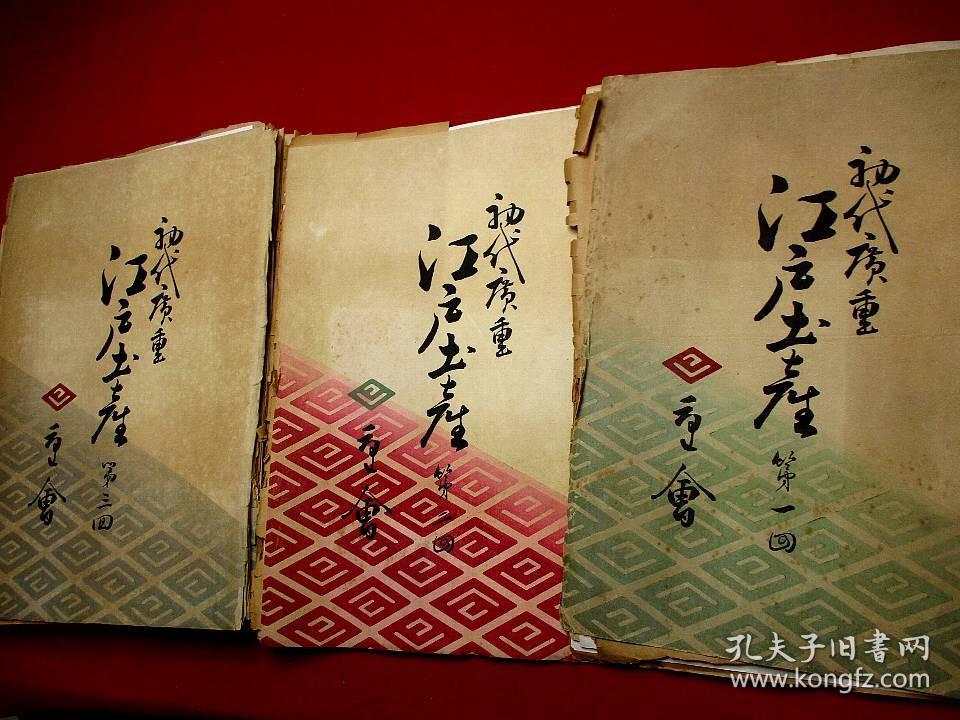 初代廣重
江戸土産
第一回
重會
初代廣重
江戸土産
第二回
重會
初代廣重
江戸土産
第三回
重會
孔夫子旧書网
www.kongfz.com